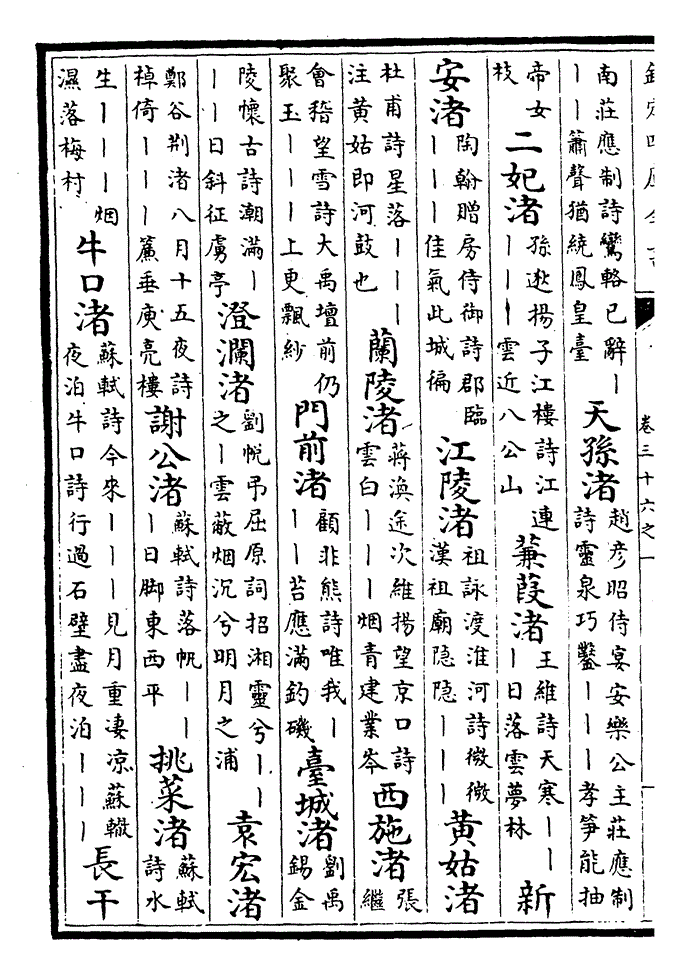 欽定四庫全書 卷三十六之一
南莊應制詩鸞輅已辭｜｜｜簫聲猶繞鳳皇臺 天孫渚 趙彦昭侍宴安樂公主莊應制詩靈泉巧鑿｜｜｜孝筍能抽
帝女枝 二妃渚 孫逖揚子江樓詩江連｜｜｜雲近八公山 蒹葭渚 王維詩天寒｜｜｜日落雲夢林 新
安渚 陶翰贈房侍御詩郡臨｜｜｜佳氣此城徧 江陵渚 祖詠渡淮河詩微微漢祖廟隐隐｜｜｜ 黄姑渚
杜甫詩星落｜｜｜注黄姑即河鼓也 蘭陵渚 蔣渙途次維揚望京口詩雲白｜｜｜烟青建業岑 西施渚 張繼
會稽望雪詩大禹壇前仍聚玉｜｜｜上更飄紗 門前渚 顧非熊詩唯我｜｜｜苔應滿釣磯 臺城渚 劉禹錫金
陵懷古詩潮滿｜｜｜日斜征虜亭 澄瀾渚 劉悅弔屈原詞招湘靈兮｜｜之｜雲蔽烟沉兮明月之浦 袁宏渚
鄭谷荆渚八月十五夜詩棹倚｜｜｜簾垂庾亮樓 謝公渚 蘇軾詩落帆｜｜｜日脚東西平 挑菜渚 蘇軾詩水
生｜｜｜｜烟濕落梅村 牛口渚 蘇軾詩今來｜｜｜見月重凄凉蘇轍夜泊牛口詩行過石壁盡夜泊｜｜｜ 長干